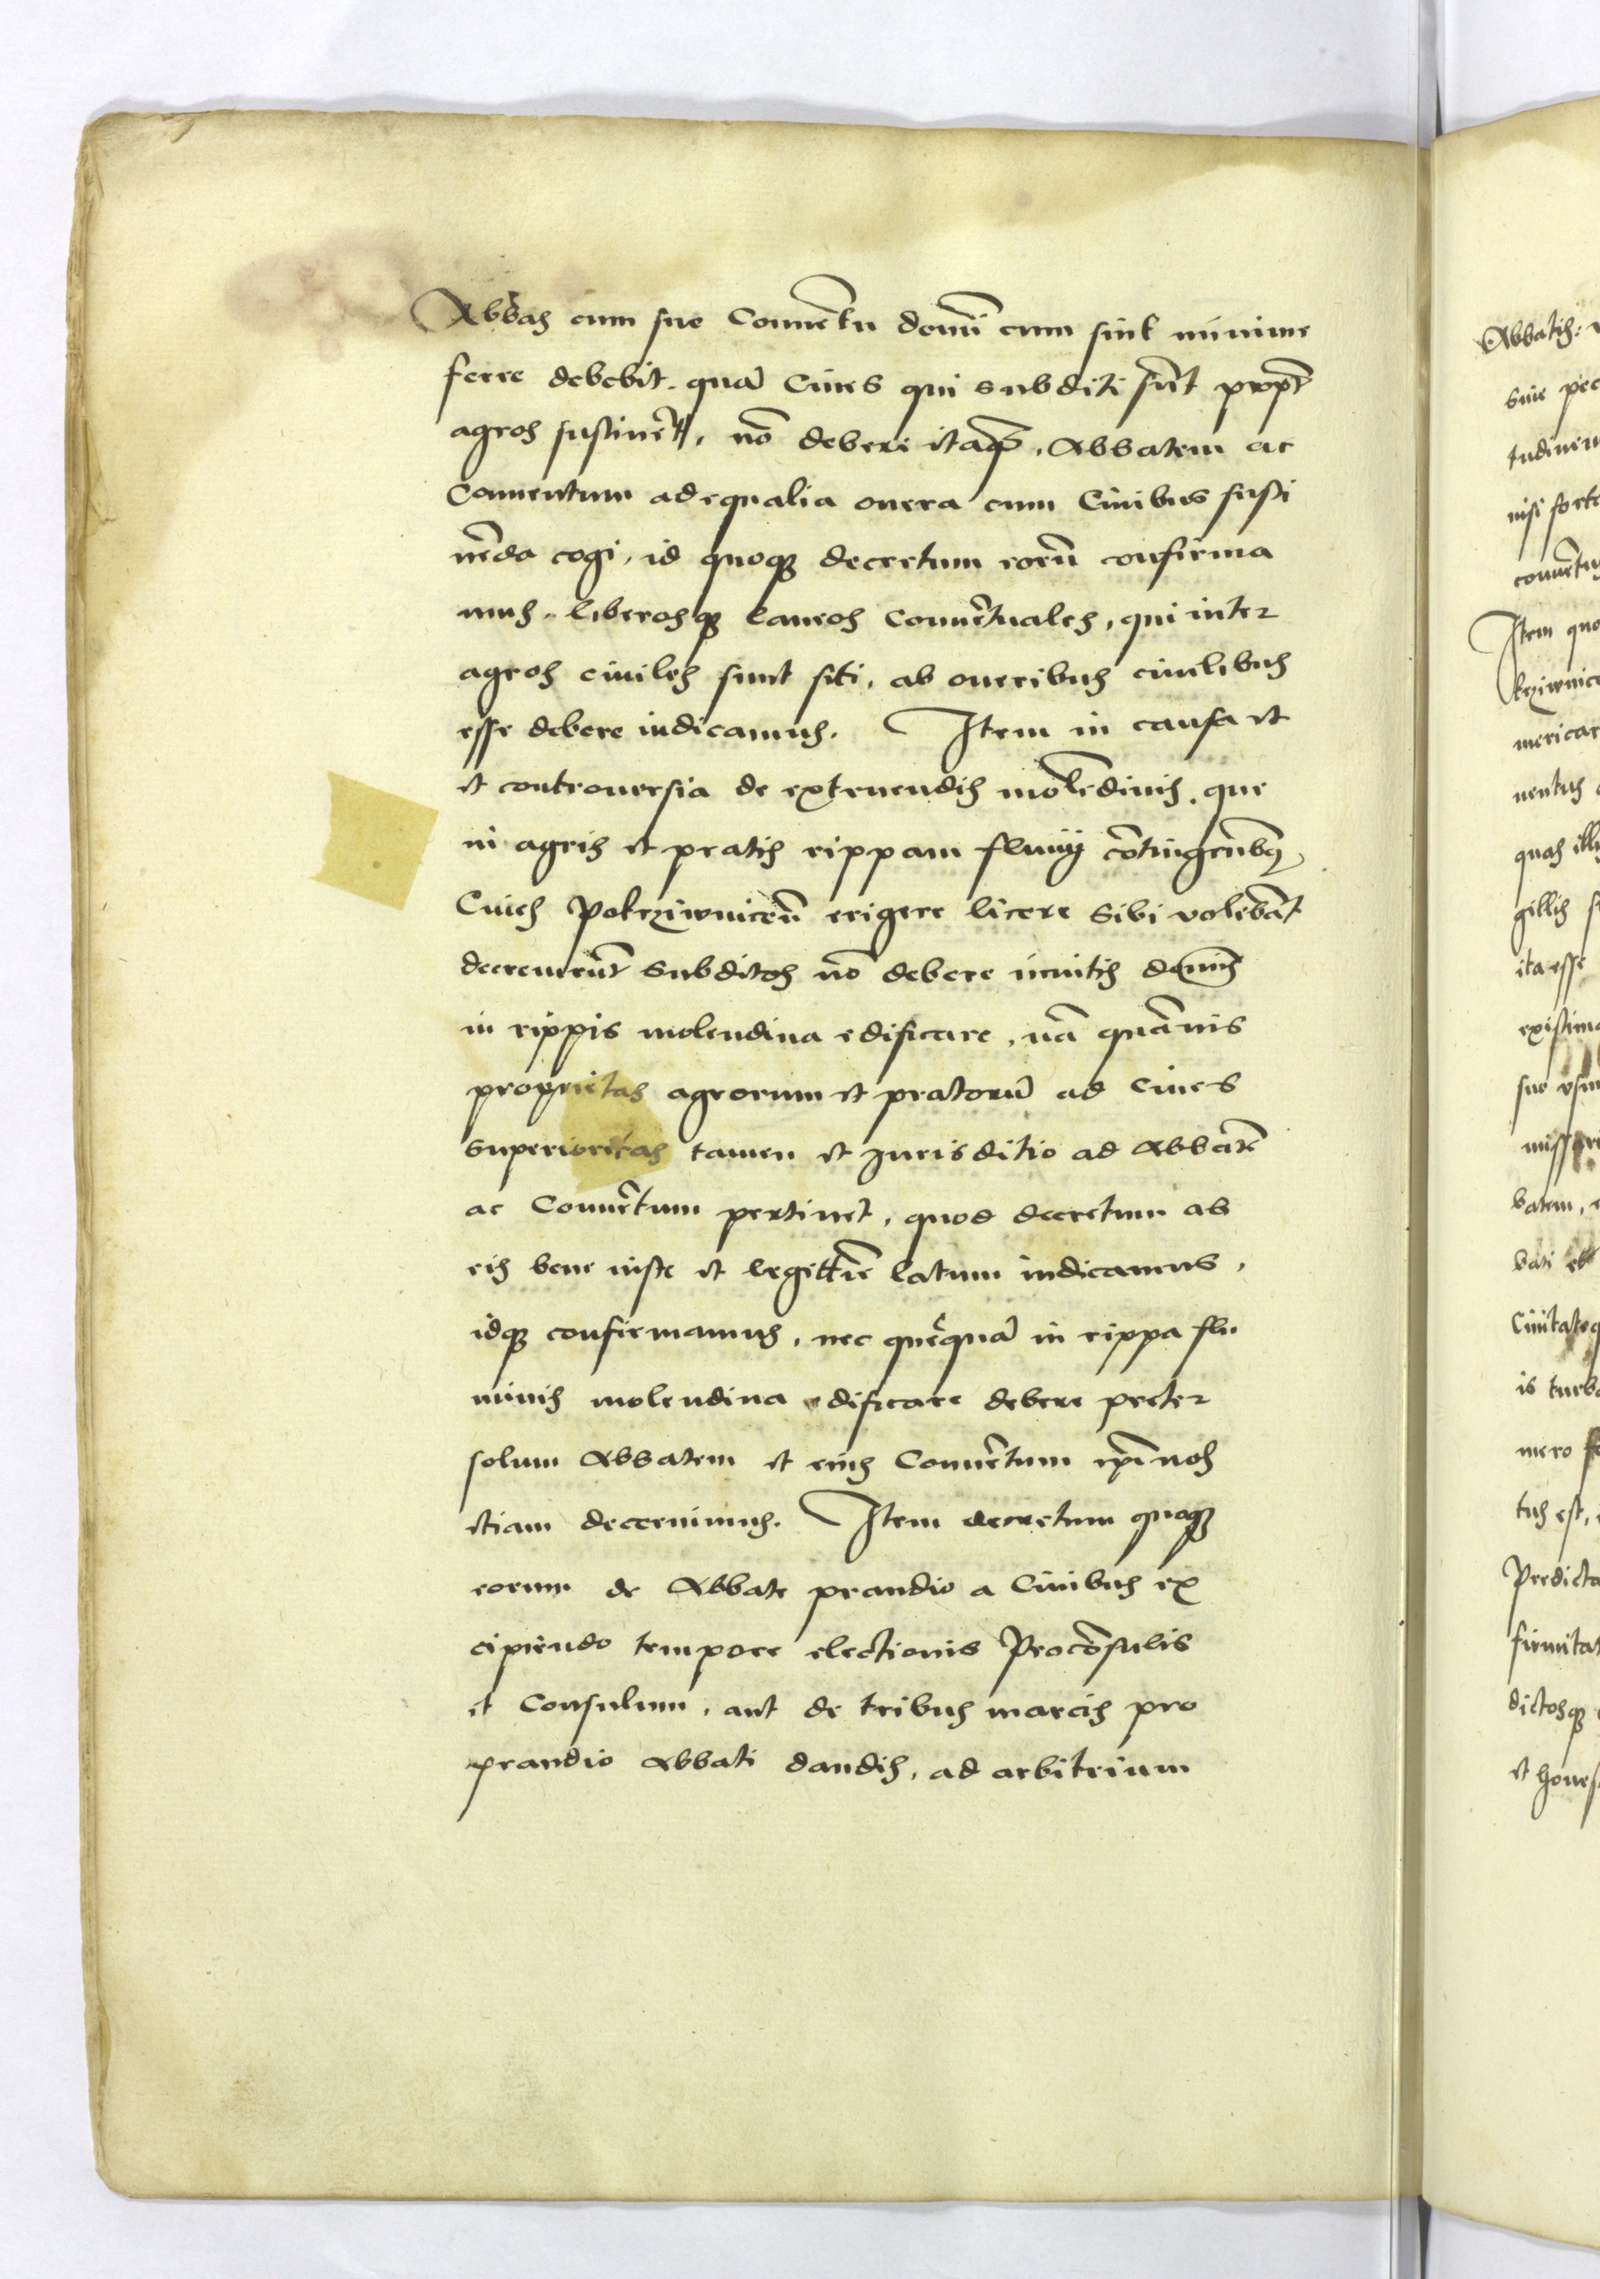 Abbas cum suo Conuẽtu domĩ cum sint minime
ferre debebit. quã Ciues qui subditi sũt propt̃
agros sustinẽt, nõ debere itaq̃, Abbatem ac
Conuentum ad equalia onera cum Ciuibus susti
nẽda cogi, id quoq; decretum eorũ confirma
mus. liberosq; laneos Conuẽtuales, qui inter
agros ciuiles sunt siti, ab oneribus ciuilibus
esse debere iudicamus. Item in causa et
et controuersia de extruendis molẽdinis, que
in agris et pratis rippam fluuij cõtingẽtibq
Ciues Pokrziwniceñ erigere licere sibi volebãt
decreuerũt subditos nõ debere inuitis dominis
in rippis molendina edificare, nã quãuis
proprietas agrorum et pratorũ ad Ciues
superioritas tamen et Jurisditio ad Abbatẽ
ac Conuẽtum pertinet, quod decretum ab
eis bene iuste et legittĩe latum iudicamus,
idq; confirmamus, nec quẽquã in rippa flu
minis molendina edificare debere preter
solum Abbatem et eius Conuẽtum ip̃i nos
etiam decernimus. Item decretum quoq;
eorum de Abbate prandio a Ciuibus ex
cipiendo tempore electionis Procõsulis
et Consulum, aut de tribus marcis pro
prandio Abbati dandis, ad arbitrium
Abbatis:
siue pec
tudinem
nisi forte
conuẽtu
Item quo
krziwnice
mericar
nentus
quas ill
gillis
ita esse
existima
suo usu
batem,
bati et
Ciuitateq
is turba
mero
tus est,
Predicta
firmitat
dictosq;
et hones